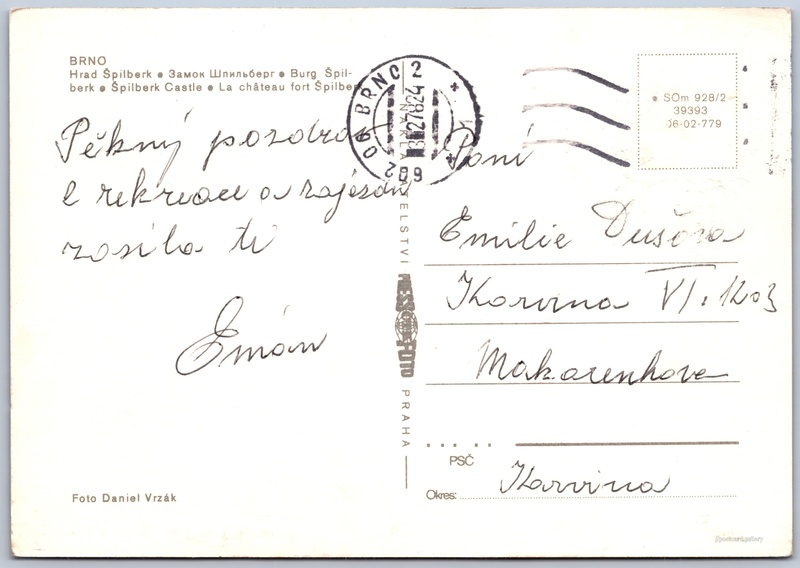 BRNO
Hrad Špilberk ● Замок Шпильберг ● Burg Špil-
berk ● Špilberk Castle ● La château fort Špilber
Pěkný pozdrav
z rekreace a zájezdu
zasílá ti
Emán
Foto Daniel Vrzák
BRNO 2
602 00
NAKLADATELSTVÍ
PRESSFOTO
PRAHA
● SOm 928/2
39393
06-02-779
Paní
Emilie
Karvina VI.
Makarenkova
PSČ
Okres: Karvina